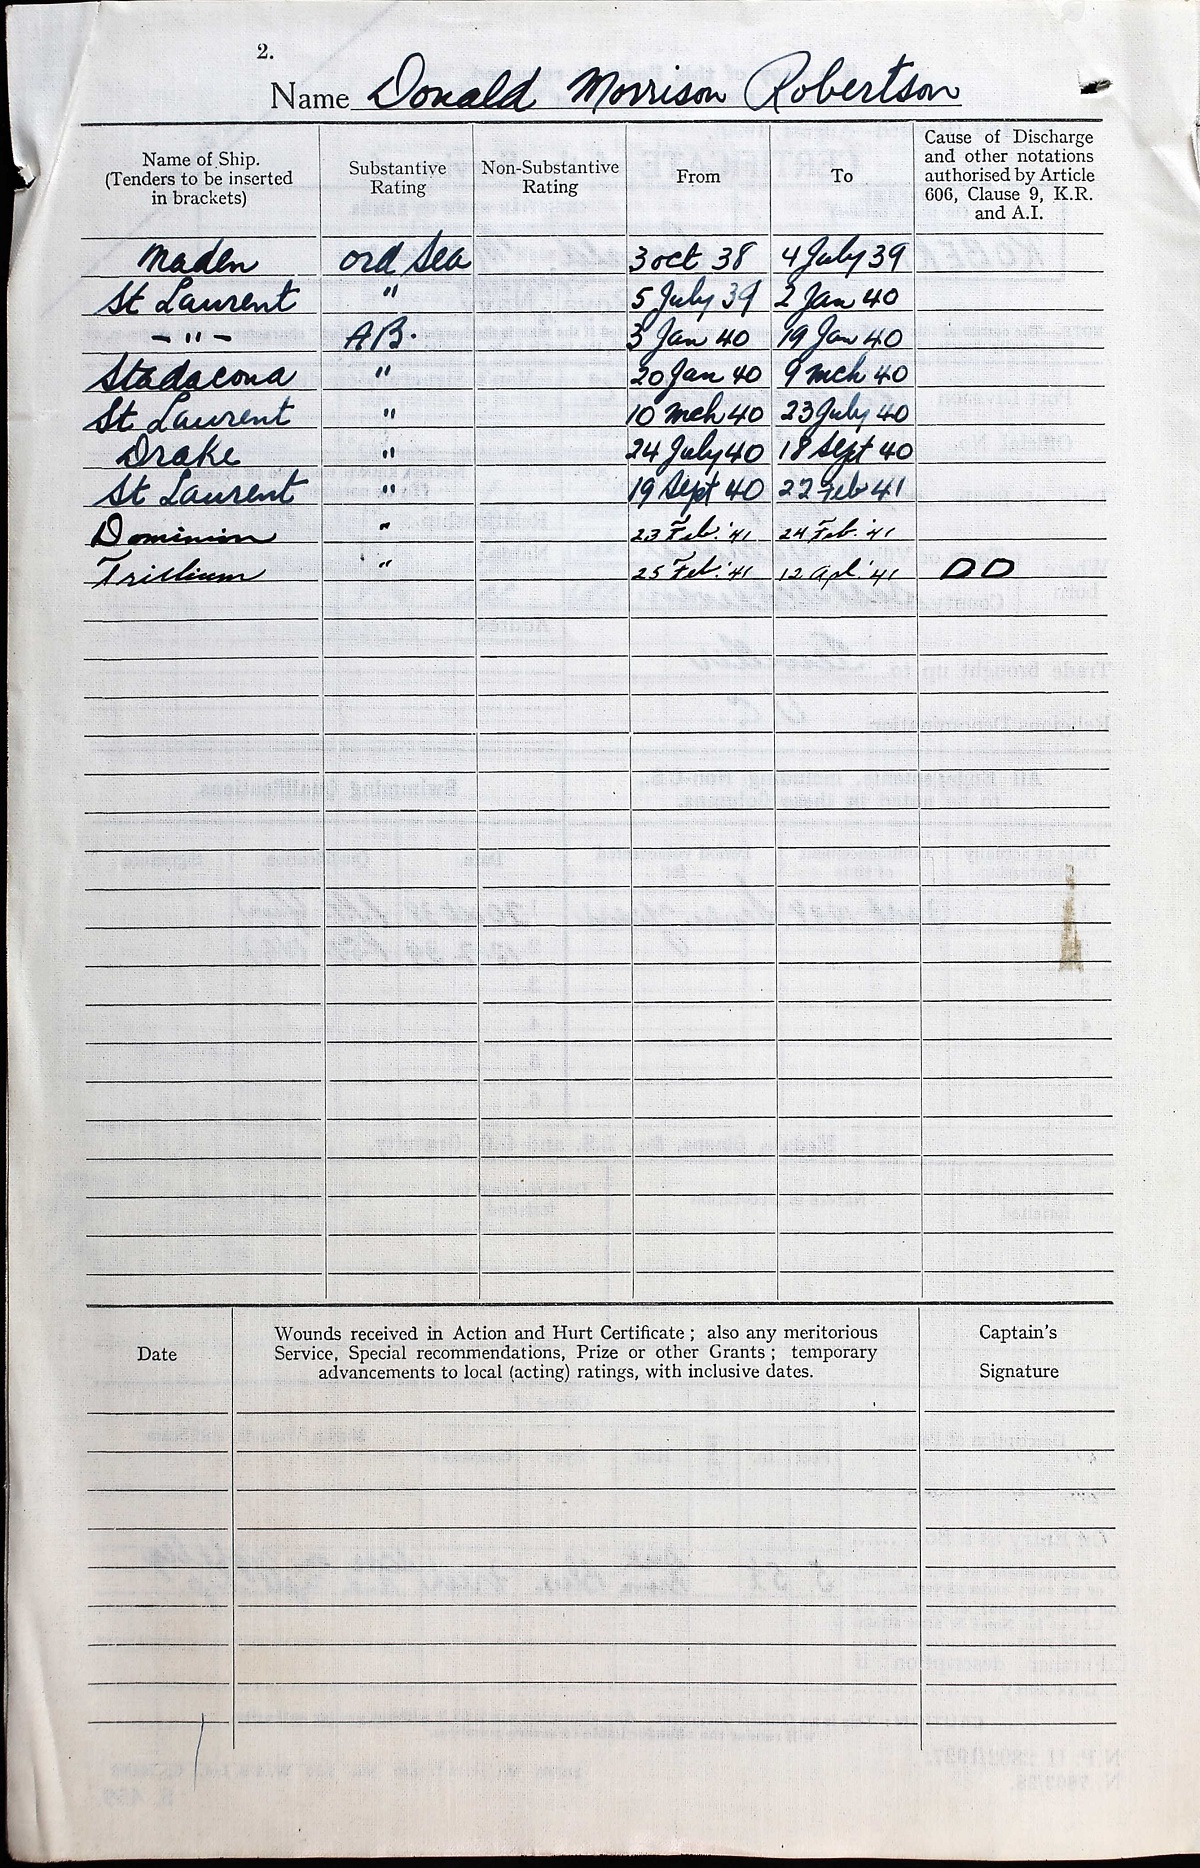 2.
Name Donald Morrison Robertson
Name of Ship. (Tenders to be inserted in brackets) Substantive Rating Non-Substantive Rating From To Cause of Discharge and other notations authorised by Article 606, Clause 9, K.R. and A.I.
Naden ord Sea 3 oct 38 4 July 39
St Laurent " 5 July 39 2 Jan 40
- " - AB. 3 Jan 40 19 Jan 40
Stadacona " 20 Jan 40 9 mch 40
St Laurent " 10 mch 40 23 July 40
Drake " 24 July 40 18 Sept 40
St Laurent " 19 Sept 40 22 Feb 41
Dominion " 23 Feb. '41 24 Feb. '41
Trillium " 25 Feb. '41 12 Apl. '41 DD
Date Wounds received in Action and Hurt Certificate ; also any meritorious Captain's
Service, Special recommendations, Prize or other Grants ; temporary
advancements to local (acting) ratings, with inclusive dates. Signature